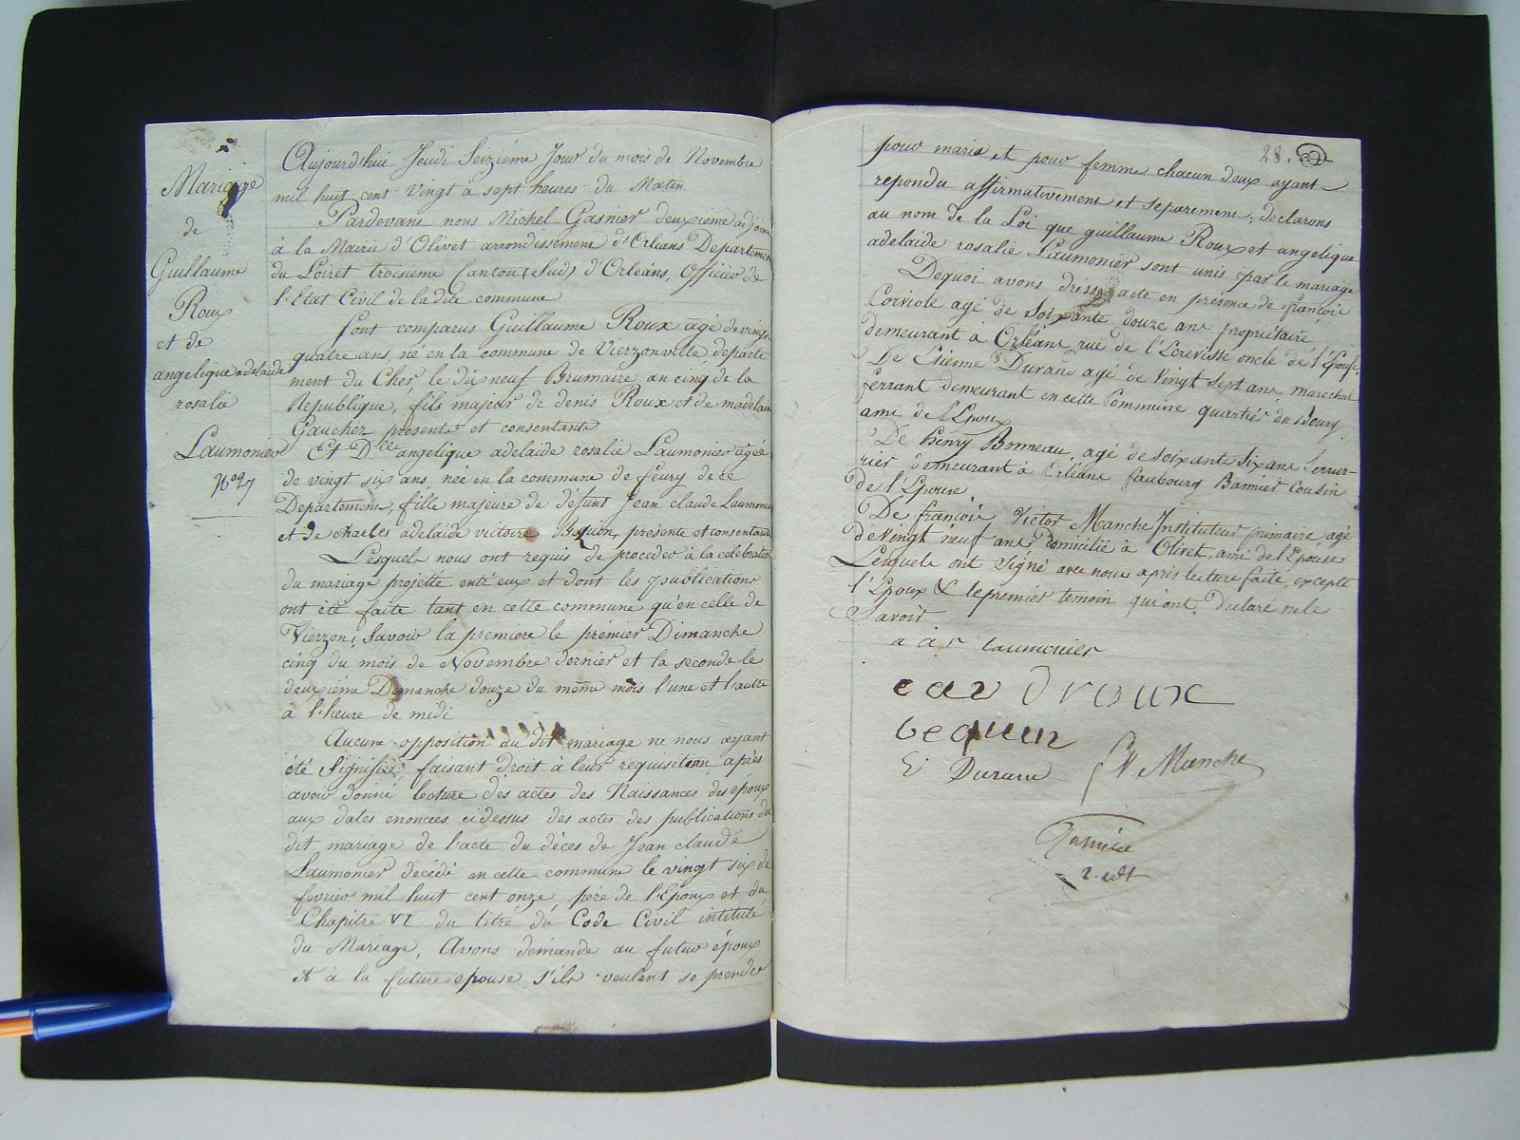 Mariage
de
Guillaume
Roux
et de
angelique adelaide
rosalie
Laumonier
Aujourd'hui Jeudi Seizième Jour du mois de Novembre
mil huit cent Vingt à sept heures du Matin
Pardevant nous Michel Gasnier deuxième adjoint
à la Mairie d'Olivet arrondissement d'Orléans Departement
du Loiret troisieme Canton (Sud) d'Orleans, Officier de
l'Etat Civil de la dite commune
Sont comparus Guillaume Roux agé de vingt
quatre ans, né en la commune de Vierzonville departe
ment du Cher, le dix neuf Brumaire an cinq de la
Republique, fils majeur de denis Roux et de madelaine
Gaucher presente et consentante
Et Dlle angelique adelaide rosalie Laumonier agée
de vingt six ans, née en la commune de fleury de ce
Departement, fille majeure de défunt Jean claude Laumonier
et de charles adelaide victoire presente et consentante
Lesquels nous ont requis de proceder à la celebration
du mariage projetté entr'eux et dont les publications
ont été faite tant en cette commune qu'en celle de
Vierzon, Savoir la premiere le premier Dimanche
cinq du mois de Novembre dernier et la seconde le
deuxieme Dimanche douze du même mois l'une et l'autre
à l'heure de midi
Aucune opposition au dit mariage ne nous ayant
été Signifiée, faisant droit à leur requisition, après
avoir donné lecture des actes des Naissances des époux
aux dates enoncées cidessus des actes des publications du
dit mariage de l'acte du décès de Jean claude
Laumonier décédé en cette commune le vingt six de
fevrier mil huit cent onze père de l'Epoux et du
Chapitre VI du titre du Code Civil intitulé
du Mariage, Avons demandé au futur époux
et à la future epouse s'ils veulent se prendre
28.
pour mari et pour femme chacun deux ayant
repondu affirmativement et separement, declarons
au nom de la Loi que guillaume Roux et angelique
adelaide rosalie Laumonier sont unis par le mariage
Dequoi avons dressé acte en presence de françois
Corviole agé de Soixante douze ans propriétaire
demeurant à Orléans rue de l'Ecrevisse oncle de l'Epouse,
De Etienne Durand agé de Vingt Sept ans marechal
ferrant demeurant en cette Commune quartier du Bourg
ami de l'Epoux
De henry Bonneau, agé de soixante Six ans
demeurant à Orléans faubourg Bannier Cousin
de l'Epoux
De françois Victor Manche Instituteur primaire agé
de Vingt neuf ans domicilié à Olivet ami de l'Epouse
Lesquels ont Signé avec nous après lecture faite, excepté
l'Epoux & le premier temoin qui ont Declaré ne le
Savoir
a a r laumonier
bequin
E Durand
fV Manche
Gasnier
2. adt